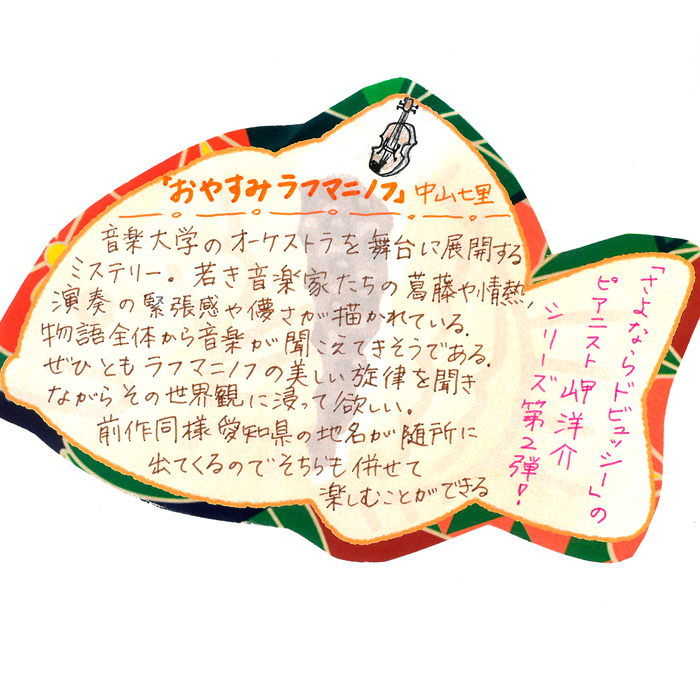 「おやすみラフマニノフ」中山七里
音楽大学のオーケストラを舞台に展開する
ミステリー。若き音楽家たちの葛藤や情熱,
演奏の緊張感や儚さが描かれている.
物語全体から音楽が聞こえてきそうである.
ぜひともラフマニノフの美しい旋律を聞き
ながらその世界観に浸って欲しい。
前作同様愛知県の地名が随所に
出てくるのでそちらも併せて
楽しむことができる
「さよならドビュッシー」の
ピアニスト岬洋介
シリーズ第2弾!